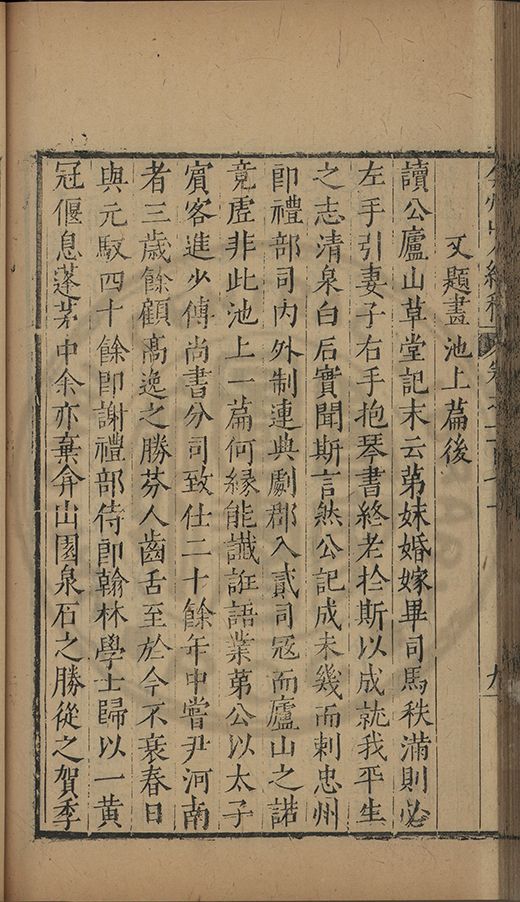 又題畫池上篇後
讀公廬山草堂記末云苐妹婚嫁畢司馬秩滿則必
左手引妻子右手抱琴書終老扵斯以成就我平生
之志清泉白后實聞斯言然公記成未幾而刺忠州
即禮部司内外制連典劇郡入貳司冦而廬山之諾
竟虛非此池上一篇何縁能讖誑語業苐公以太子
賔客進少傅尚書分司致仕二十餘年中嘗尹河南
者三歳餘顧高逸之勝芬人齒舌至於今不衰春日
與元馭四十餘即謝禮部侍郎翰林學士歸以一黄
冠偃息蓬茅中余亦棄弇山園泉石之勝從之賀季